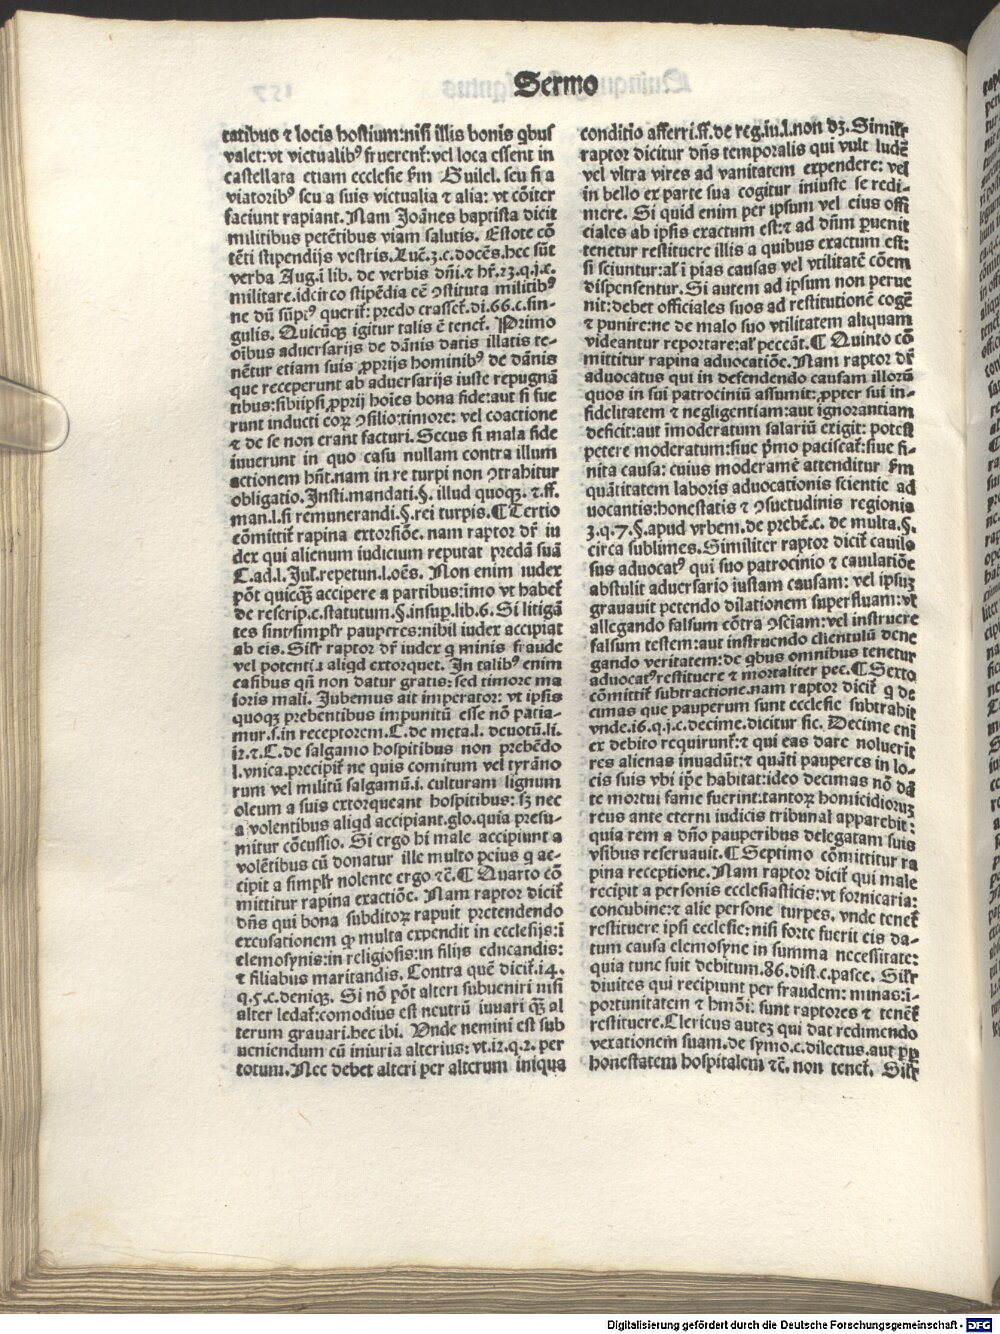 Sermo
tatibus ⁊ locis hostium:nisi illis bonis qͥbus
valet:vt victualibꝰ fruerent᷑:vel loca essent in
castellata etiam ecclesie ẜm Guilel. seu si a
viatoribꝰ seu a suis victualia ⁊ alia: vt cōiter
faciunt rapiant. Nam Joānes baptista dicit
militibus petētibus viam salutis. Estote cō
tēti stipendijs vestris. Luc̄.3.c.docēs.hec sūt
verba Aug.i lib. de verbis dn̄i.⁊ hr̄.23.q.j.c.
militare.idcirco stipēdia cē ꝯstituta militibꝰ
ne dū sūptꝰ querit᷑: predo crasset᷑.di.66.c.sin-
gulis. Quicūqꝫ igitur talis ē tenet᷑. Primo
oībus aduersarijs de dānis datis illatis te-
nētur etiam suis ꝓprijs hominibꝰ de dānis
que receperunt ab aduersarijs iuste repugnā
tibus:sibiipsi ꝓprij hoīes bona fide:aut si fue
runt inducti eorꝝ ꝯsilio:timore: vel coactione
⁊ de se non erant facturi. Secus si mala fide
iuuerunt in quo casu nullam contra illum
actionem hn̄t.nam in re turpi non ꝯtrahitur
obligatio. Insti.mandati.§. illud quoqꝫ. ⁊.ff.
man.l.si remunerandi.§.rei turpis.¶ Tertio
cōmittit᷑ rapina extorsiōe. nam raptor dr̄ iu
dex qui alienum iudicium reputat predā suā
C.ad.l. Jul̄.repetun.l.oēs. Non enim iudex
pōt quicqͣꝫ accipere a partibus:imo vt habet᷑
de rescrip.c.statutum.§.insuꝑ.lib.6. Si litigā
tes sint simpl̄r pauperes:nihil iudex accipiat
ab eis. Sil̄r raptor dr̄ iudex q̄ minis fraude
vel potentia aliqd extorquet. In talibꝰ enim
casibus qn̄ non datur gratis: sed timore ma
ioris mali. Jubemus ait imperator: vt ipsis
quoqꝫ prebentibus impunitū esse nō patia-
mur.s.in receptorem.C.de meta.l. deuotū.li.
12.⁊.C. de salgamo hospitibus non prebēdo
l.vnica.precipit᷑ ne quis comitum vel tyrāno
rum vel militū salgamū.i. culturam lignum
oleum a suis extorqueant hospitibus: sꝫ nec
a volentibus aliqd accipiant.glo.quia presu-
mitur cōcussio. Si ergo hi male accipiunt a
volētibus cū donatur ille multo peius q̄ ac-
cipit a simpl̄r nolente ergo ⁊c̄.¶ Quarto cō
mittitur rapina exactiōe. Nam raptor dicit᷑
dn̄s qui bona subditorꝝ rapuit pretendendo
excusationem qꝛ multa expendit in ecclesijs:ī
elemosynis:in religiosis:in filijs educandis:
⁊ filiabus maritandis. Contra quē dicit᷑.14.
q.5.c.deniqꝫ. Si nō pōt alteri subueniri nisi
alter ledat᷑:comodius est neutrū iuuari qͣꝫ al
terum grauari.hec ibi. Vnde nemini est sub
ueniendum cū iniuria alterius: vt.12.q.2. per
totum. Nec debet alteri per alterum iniqua
conditio afferri.ff.de reg.iu.l.non dꝫ. Simil̄r
raptor dicitur dn̄s temporalis qui vult ludē
vel vltra vires ad vanitatem expendere: vel
in bello ex parte sua cogitur iniuste se redi-
mere. Si quid enim per ipsum vel eius offi
ciales ab ipsis exactum est:⁊ ad dn̄m ꝑuenit
tenetur restituere illis a quibus exactum est:
si sciuntur:al̄ ī pias causas vel vtilitatē cōem
dispensentur. Si autem ad ipsum non perue
nit:debet officiales suos ad restitutionē cogē
⁊ punire:ne de malo suo vtilitatem aliquam
videantur reportare:al̄ peccāt.¶ Quinto cō
mittitur rapina aduocatiōe. Nam raptor dr̄
aduocatus qui in defendendo causam illorū
quos in sui patrociniū assumit:ꝓpter sui in-
fidelitatem ⁊ negligentiam:aut ignorantiam
deficit:aut īmoderatum salariū exigit: potest
petere moderatum:siue pͥmo paciscat᷑:siue fi-
nita causa: cuius moderamē attenditur ẜm
quātitatem laboris aduocationis scientie ad
uocantis:honestatis ⁊ ꝯsuetudinis regionis
3.q.7.§.apud vrbem.de prebē.c. de multa.§.
circa sublimes. Similiter raptor dicit᷑ cauilo
sus aduocatꝰ qui suo patrocinio ⁊ cauilatiōe
abstulit aduersario iustam causam: vel ipsuꝫ
grauauit petendo dilationem superfluam:vt
allegando falsum cōtra ꝯsciam:vel instruere
falsum testem:aut instruendo clientulū dene
gando veritatem:de qͥbus omnibus tenetur
aduocatꝰ restituere ⁊ mortaliter pec.¶ Sexto
cōmittit᷑ subtractione.nam raptor dicit᷑ q̄ de
cimas que pauperum sunt ecclesie subtrahit
vnde.16.q.j.c.decime.dicitur sic. Decime eni
ex debito requirunt᷑:⁊ qui eas dare noluerit
res alienas inuadūt:⁊ quāti pauperes in lo-
cis suis vbi ip̄e habitat:ideo decimas nō dā
te mortui fame fuerint:tantorꝝ homicidioruꝫ
reus ante eterni iudicis tribunal apparebit:
quia rem a dn̄o pauperibus delegatam suis
vsibus reseruauit.¶ Septimo cōmittitur ra
pina receptione. Nam raptor dicit᷑ qui male
recipit a personis ecclesiasticis: vt fornicaria:
concubine:⁊ alie persone turpes. vnde tenet᷑
restituere ipsi ecclesie:nisi forte fuerit eis da-
tum causa elemosyne in summa necessitate:
quia tunc fuit debitum.86.dist.c.pasce. Sil̄r
diuites qui recipiunt per fraudem: minas:i-
portunitatem ⁊ hmōi: sunt raptores ⁊ tenēt᷑
restituere.Clericus autez qui dat redimendo
vexationem suam.de symo.c.dilectus.aut ꝓpt̄
honestatem hospitalem ⁊c̄. non tenet᷑. Sil̄r
Digitalisierung gefördert durch die Deutsche Forschungsgemeinschaft - DFG